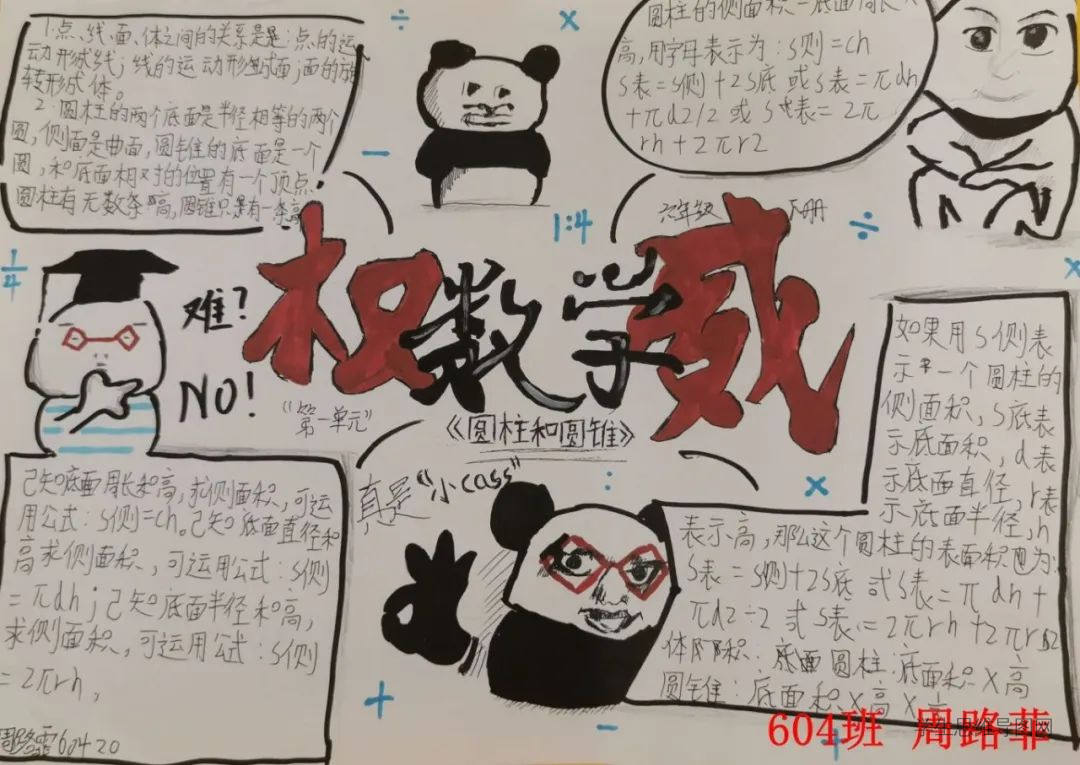 1.点、线、面、体之间的关系是是:点的运
动形成线;线的运动形成面;面的旋
转形成体。
2.圆柱的两个底面是半径相等的两个
圆,侧面是曲面,圆锥的底面是一个
圆,和底面相对的位置有一个顶点.
圆柱有无数条高,圆锥只是有一条高
圆柱的侧面积=底面周长×
高,用字母表示为:S侧=ch
S表=S侧+2S底 或S表=πdh
+πd2/2 或 S表=2π
rh+2πr2
÷
×
−
1:4
÷
×
1/4
六年级 下册
权数学威
难?
NO!
"第一单元"
《圆柱和圆锥》
真是"小case"
:
×
+
−
己知底面周长和高,求侧面积,可运
用公式:S侧=ch。己知底面直径和
高求侧面积,可运用公式:S侧
=πdh;己知底面半径和高,
求侧面积,可运用公式:S侧
=2πrh,
604 20
如果用S侧表
示一个圆柱的
侧面积,S底表
示底面积,d表
示底面直径,r表
示底面半径,h
表示高,那么这个圆柱的表面积为:
S表=S侧+2S底 或S表=πdh+
πd2÷2 或S表=2πrh+2πr2
体积:底面圆柱:底面积×高
圆锥:底面积×高×
604班 周路菲